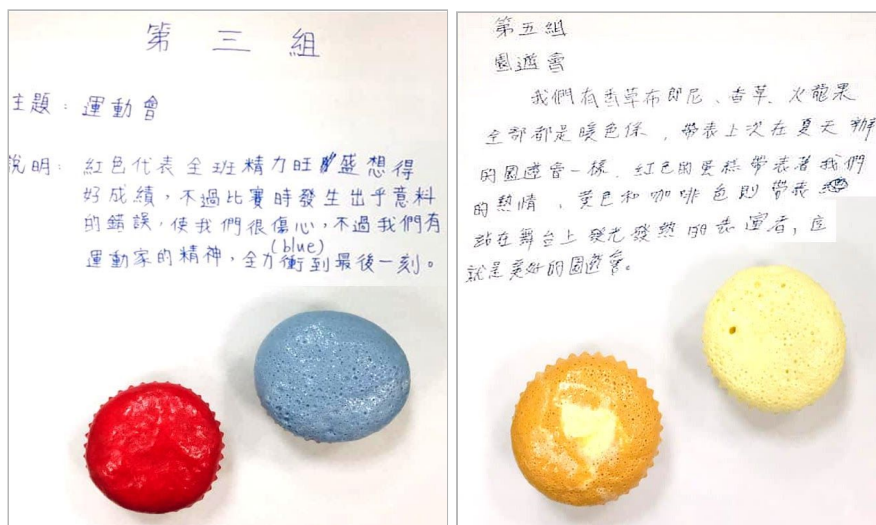 第 三 組
主題：運動會
說明：紅色代表全班精力旺盛想得
好成績，不過比賽時發生出乎意料
的錯誤，使我們很傷心，不過我們有
(blue)
運動家的精神，全力衝到最後一刻。
第五組
園遊會
我們有香草布朗尼、香草、火龍果
全部都是暖色係，帶表上次在夏天辦
的園遊會一樣，紅色的蛋糕帶表著我們
的熱情，黃色和咖啡色則帶表
站在舞台上發光發熱的表演者，這
就是美好的園遊會。